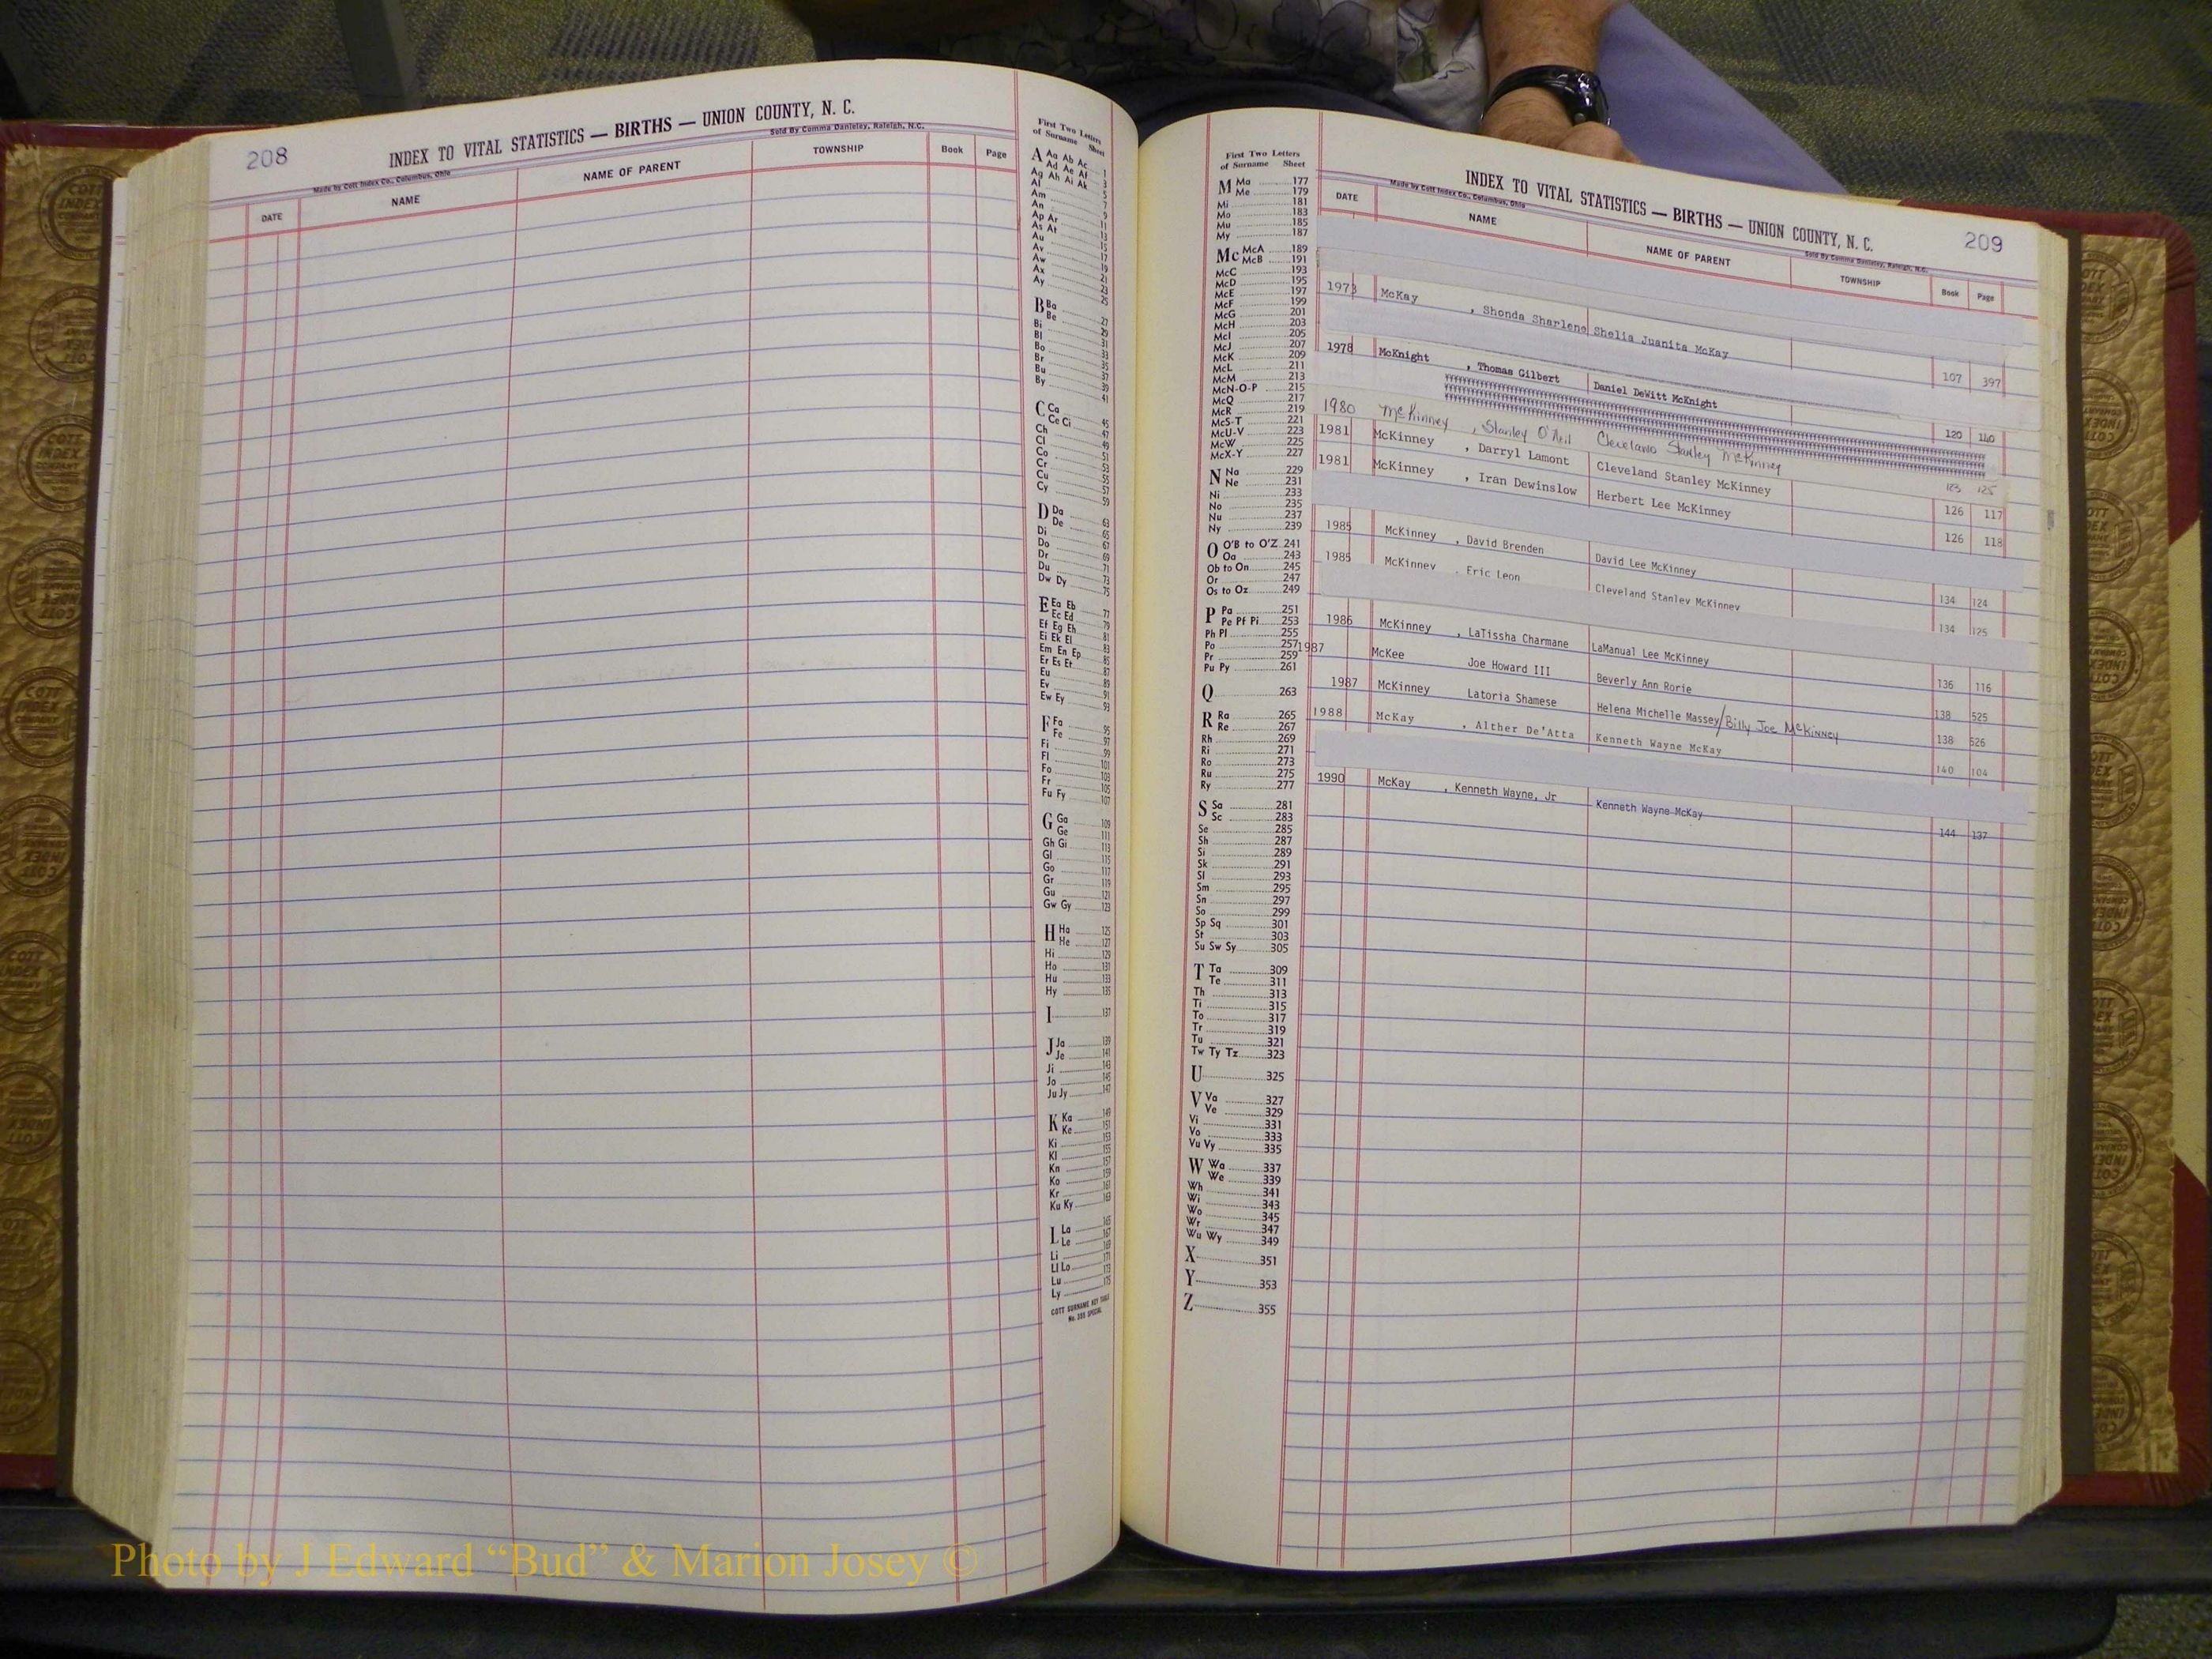 208
INDEX TO VITAL STATISTICS — BIRTHS — UNION COUNTY, N. C.
Made by Cott Index Co., Columbus, Ohio
Sold By Comma Danieley, Raleigh, N.C.
DATE NAME NAME OF PARENT TOWNSHIP Book Page
First Two Letters
of Surname Sheet
A Aa Ab Ac 1
Ad Ae Af 3
Ag Ah Ai Ak 5
Al 7
Am 9
An 11
Ap Ar 13
As At 15
Au 17
Av 19
Aw 21
Ax 23
Ay 25
B Ba 27
Be 29
Bi 31
Bl 33
Bo 35
Br 37
Bu 39
By 41
C Ca 45
Ce Ci 47
Ch 49
Cl 51
Co 53
Cr 55
Cu 57
Cy 59
D Da 63
De 65
Di 67
Do 69
Dr 71
Du 73
Dw Dy 75
E Ea Eb 77
Ec Ed 79
Ef Eg Eh 81
Ei Ek El 83
Em En Ep 85
Er Es Et 87
Eu 89
Ev 91
Ew Ey 93
F Fa 95
Fe 97
Fi 99
Fl 101
Fo 103
Fr 105
Fu Fy 107
G Ga 109
Ge 111
Gh Gi 113
Gl 115
Go 117
Gr 119
Gu 121
Gw Gy 123
H Ha 125
He 127
Hi 129
Ho 131
Hu 133
Hy 135
I 137
J Ja 139
Je 141
Ji 143
Jo 145
Ju Jy 147
K Ka 149
Ke 151
Ki 153
Kl 155
Kn 157
Ko 159
Kr 161
Ku Ky 163
L La 165
Le 167
Li 169
Ll Lo 171
Lu 173
Ly 175
COTT SURNAME KEY TABLE
No. 355 SPECIAL
First Two Letters
of Surname Sheet
M Ma 177
Me 179
Mi 181
Mo 183
Mu 185
My 187
Mc McA 189
McB 191
McC 193
McD 195
McE 197
McF 199
McG 201
McH 203
McI 205
McJ 207
McK 209
McL 211
McM 213
McN-O-P 215
McQ 217
McR 219
McS-T 221
McU-V 223
McW 225
McX-Y 227
N Na 229
Ne 231
Ni 233
No 235
Nu 237
Ny 239
O O'B to O'Z 241
Oa 243
Ob to On 245
Or 247
Os to Oz 249
P Pa 251
Pe Pf Pi 253
Ph Pl 255
Po 257
Pr 259
Pu Py 261
Q 263
R Ra 265
Re 267
Rh 269
Ri 271
Ro 273
Ru 275
Ry 277
S Sa 281
Sc 283
Se 285
Sh 287
Si 289
Sk 291
Sl 293
Sm 295
Sn 297
So 299
Sp Sq 301
St 303
Su Sw Sy 305
T Ta 309
Te 311
Th 313
Ti 315
To 317
Tr 319
Tu 321
Tw Ty Tz 323
U 325
V Va 327
Ve 329
Vi 331
Vo 333
Vu Vy 335
W Wa 337
We 339
Wh 341
Wi 343
Wo 345
Wr 347
Wu Wy 349
X 351
Y 353
Z 355
INDEX TO VITAL STATISTICS — BIRTHS — UNION COUNTY, N. C.
209
Made by Cott Index Co., Columbus, Ohio
Sold By Comma Danieley, Raleigh, N.C.
DATE NAME NAME OF PARENT TOWNSHIP Book Page
1973 McKay , Shonda Sharlene Shelia Juanita McKay 107 397
1978 McKnight , Thomas Gilbert Daniel DeWitt McKnight 120 140
1980 McKinney , Stanley O'Neil Cleveland Stanley McKinney 125
1981 McKinney , Darryl Lamont Cleveland Stanley McKinney 126 117
1981 McKinney , Iran Dewinslow Herbert Lee McKinney 126 118
1985 McKinney , David Brenden David Lee McKinney 134 124
1985 McKinney , Eric Leon Cleveland Stanley McKinney 134 125
1986 McKinney , LaTissha Charmane LaManual Lee McKinney 136 116
1987 McKee Joe Howard III Beverly Ann Rorie 138 525
1987 McKinney Latoria Shamese Helena Michelle Massey/Billy Joe McKinney 138 526
1988 McKay , Alther De'Atta Kenneth Wayne McKay 140 104
1990 McKay , Kenneth Wayne, Jr Kenneth Wayne McKay 144 137
Photo by J Edward “Bud” & Marion Josey ©